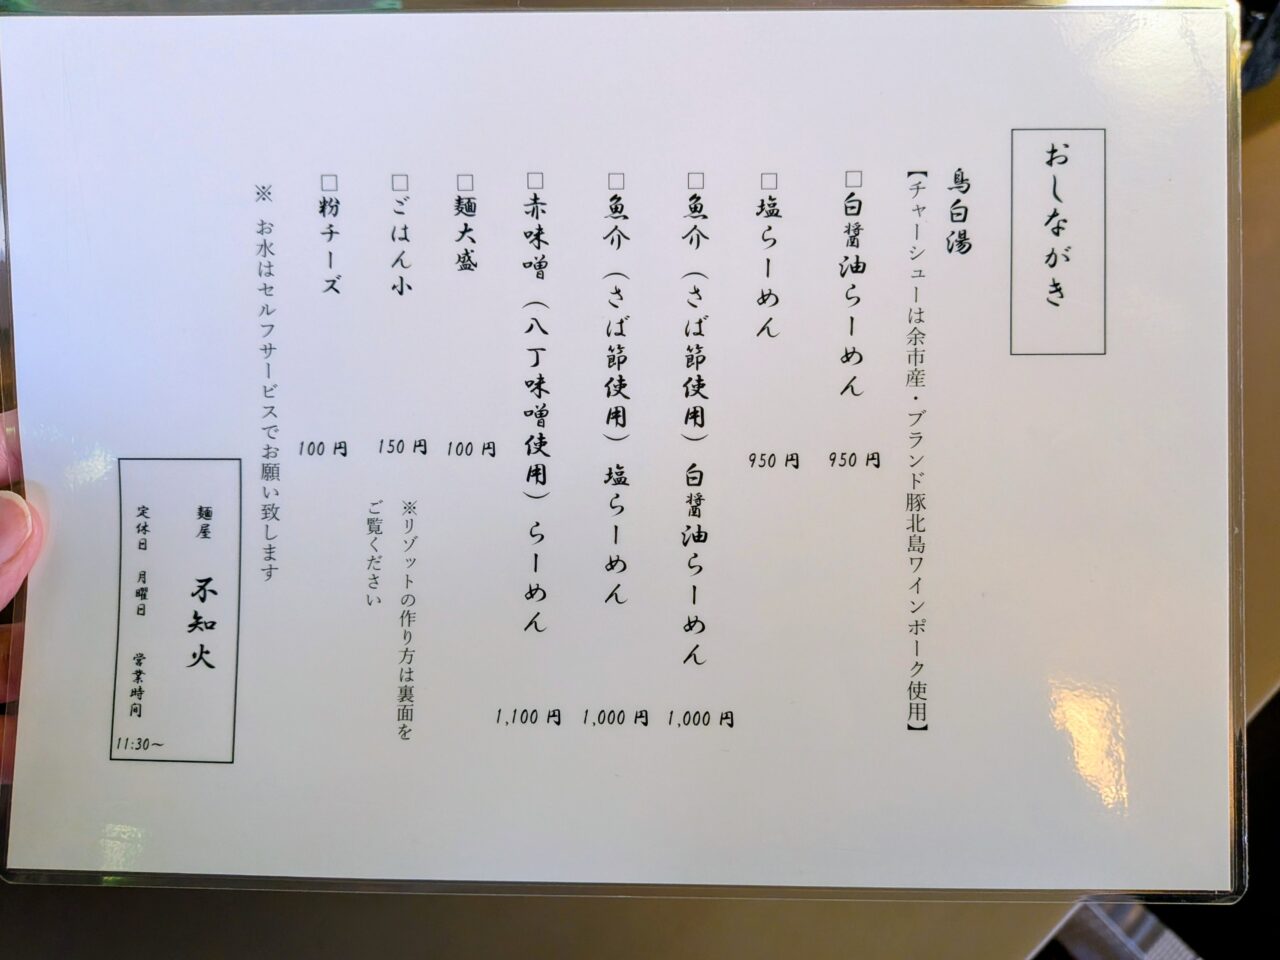 おしながき
鳥白湯
【チャーシューは余市産・ブランド豚北島ワインポーク使用】
□白醤油らーめん 950円
□塩らーめん 950円
□魚介（さば節使用）白醤油らーめん 1,000円
□魚介（さば節使用）塩らーめん 1,000円
□赤味噌（八丁味噌使用）らーめん 1,100円
□麺大盛 100円
□ごはん小 150円
※リゾットの作り方は裏面を
ご覧ください
□粉チーズ 100円
※ お水はセルフサービスでお願い致します
麺屋 不知火
定休日 月曜日 営業時間 11:30～